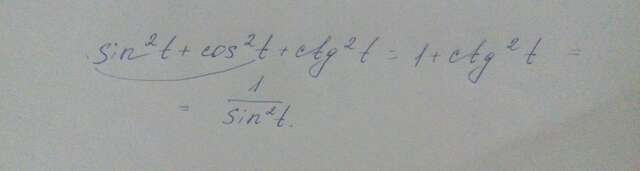 sin²t + cos²t + ctg²t = 1 + ctg²t =
= 1/sin²t.